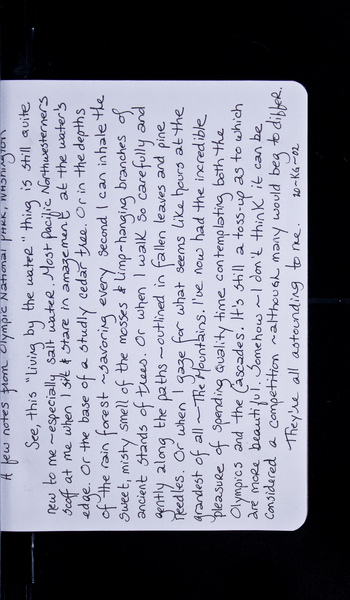 A few notes from Olympic National Park, Washington
See, this "living by the water" thing is still quite
new to me ~ especially salt water. Most Pacific Northwesterners
scoff at me when I sit & stare in amazement at the water's
edge. Or the base of a studly cedar tree. Or in the depths
of the rain forest ~ savoring every second I can inhale the
sweet, misty smell of the mosses & limp-hanging branches of
ancient stands of trees. Or when I walk so carefully and
gently along the paths ~ outlined in fallen leaves and pine
needles. Or when I gaze for what seems like hours at the
grandest of all ~ The Mountains. I've now had the incredible
pleasure of spending quality time contemplating both the
Olympics and the Cascades. It's still a toss-up as to which
are more beautiful. Somehow ~ I don't think it can be
considered a competition ~ although many would beg to differ.
They're all astounding to me.